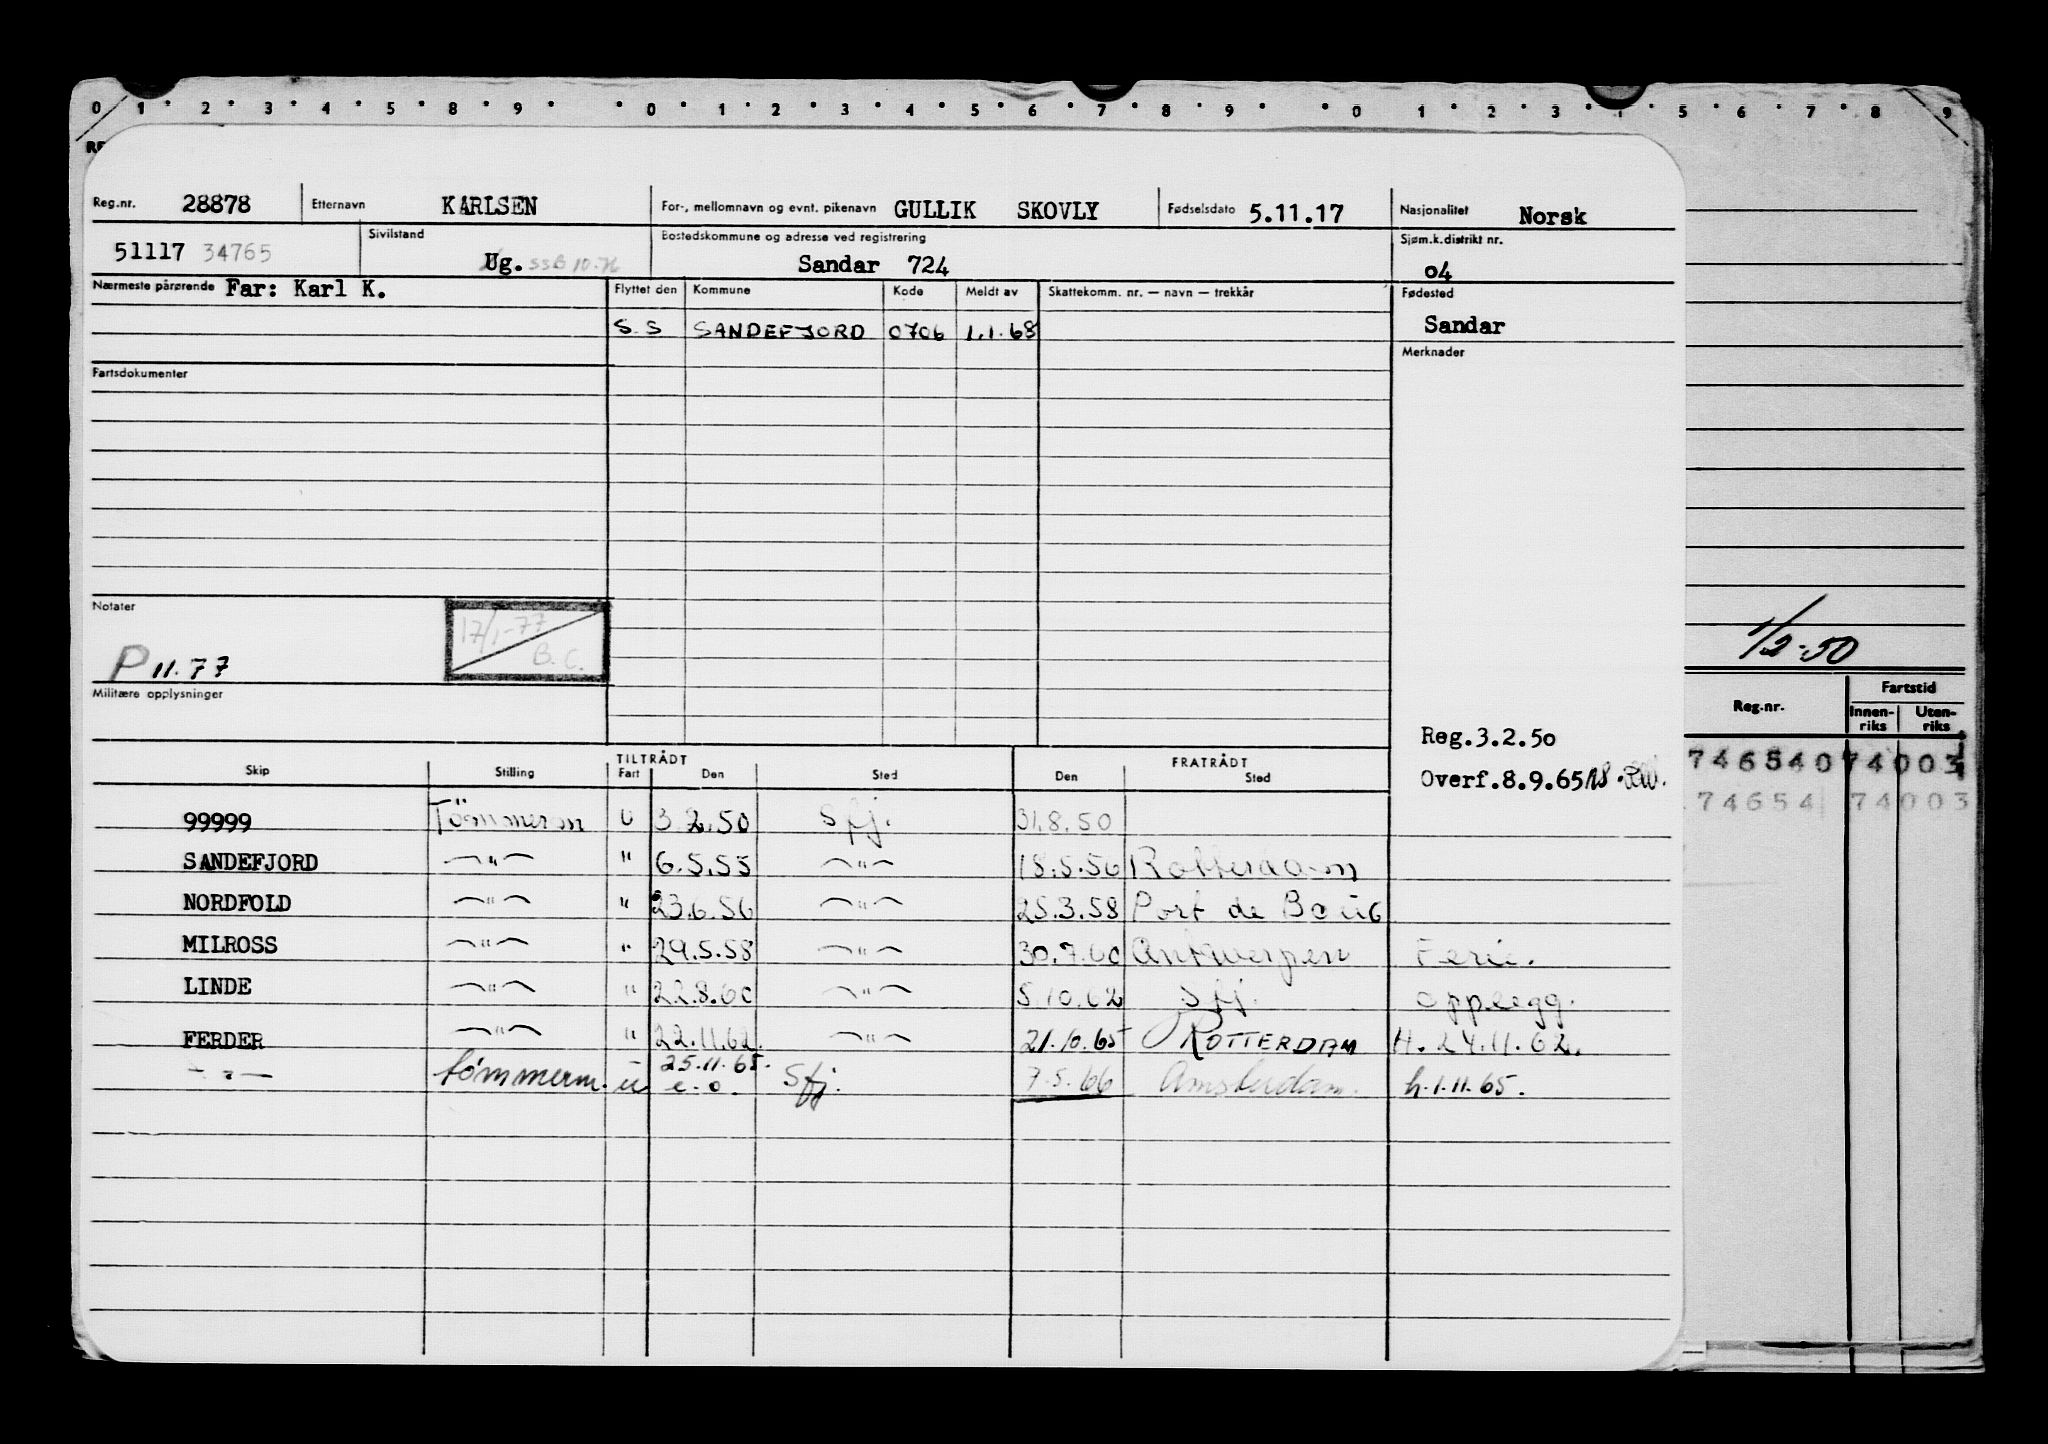 0 1 2 3 4 5 8 9 0 1 2 3 4 5 6 7 8 9 0 1 2 3 4 5 6 7 8 9
Reg.nr. 28878 Etternavn KARLSEN For-, mellomnavn og evnt. pikenavn GULLIK SKOVLY Fødselsdato 5.11.17 Nasjonalitet Norsk
51117 34765 Sivilstand Ug. Bostedskommune og adresse ved registrering Sandar 724 Sjøm.k.distrikt nr. 04
Nærmeste pårørende Far: Karl K. Flyttet den Kommune Kode Meldt av Skattekomm. nr. — navn — trekkår Fødested
S.S SANDEFJORD 0706 1.1.68 Sandar
Merknader
Fartsdokumenter
Notater
17/1-77
B.C.
P 11.77
1/2-50
Militære opplysninger
Reg.nr. Fartstid
Innen-riks Uten-riks
Reg.3.2.50
Overf.8.9.65
746540 74003
74654 74003
TILTRÅDT FRATRÅDT
Skip Stilling Fart Den Sted Den Sted
99999 Tömmerm U 3.2.50 Sfj. 31.8.50
SANDEFJORD —"— " 6.5.55 —"— 18.5.56 Rotterdam
NORDFOLD —"— " 23.6.56 —"— 25.3.58 Port de Bouc
MILROSS —"— " 29.5.58 —"— 30.7.60 Antwerpen Ferie.
LINDE —"— " 22.8.60 —"— 5.10.62 Sfj. Opplegg.
FERDER —"— " 22.11.62. —"— 21.10.65 ROTTERDAM H. 24.11.62.
—"— tömmerm. u 25.11.65. e.o. Sfj. 7.5.66 Amsterdam. h.1.11.65.